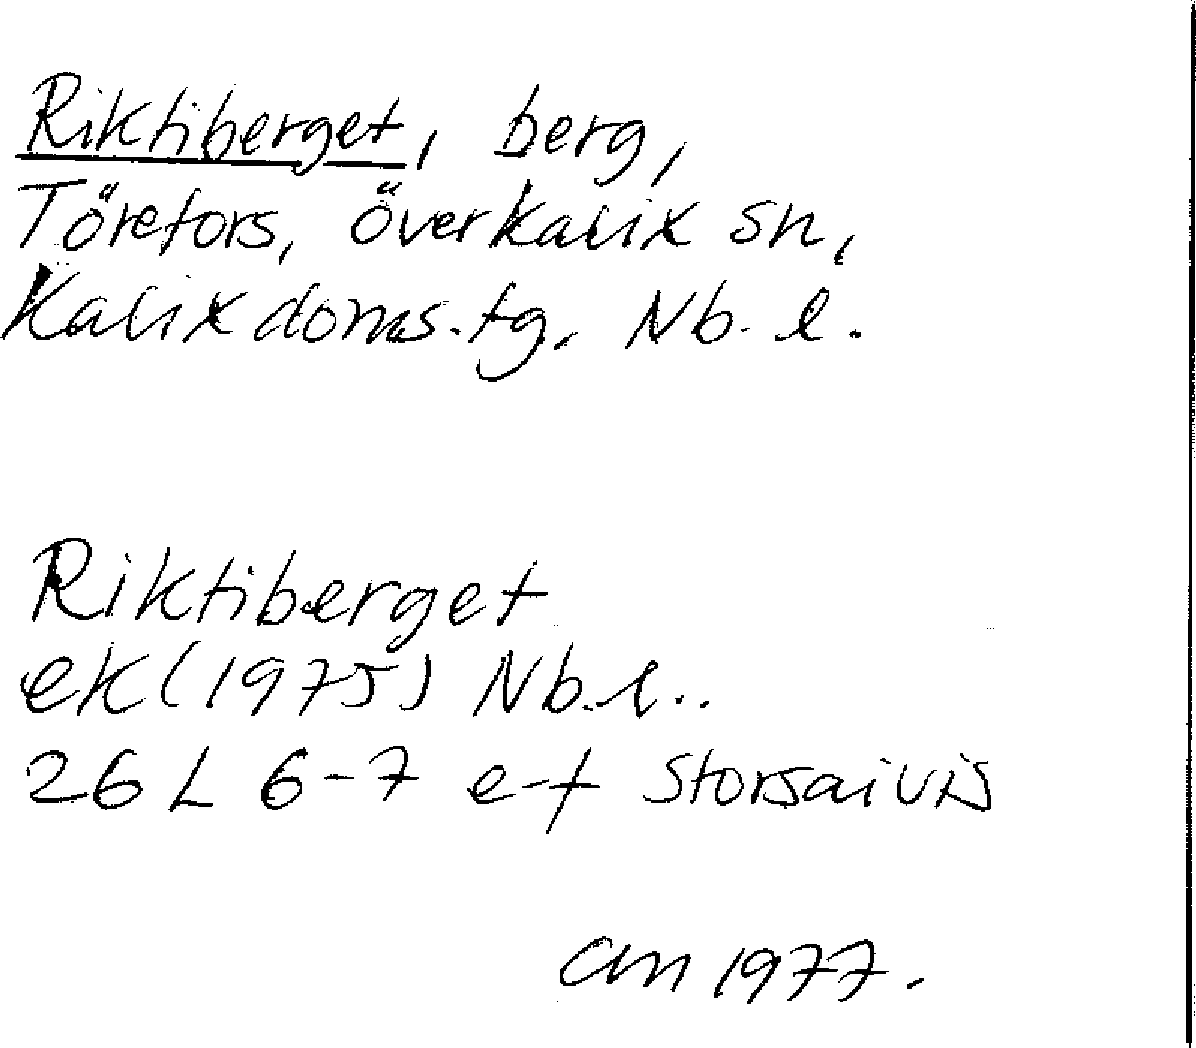 Riktiberget, berg,
Törefors, överkalix sn,
Kalix doms.tg. Nb. l.
Riktiberget
ek (1975) Nb.l..
26 L 6-7 e-f Storsaivis
am 1977.